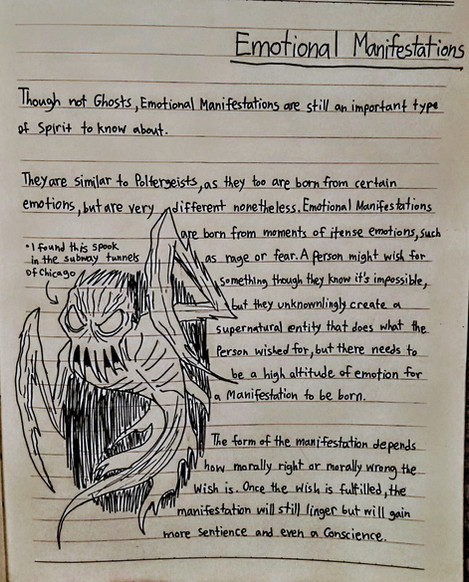 Emotional Manifestations
Though not Ghosts, Emotional Manifestations are still an important type
of Spirit to know about.
They are similar to Poltergeists, as they too are born from certain
emotions, but are very different nonetheless. Emotional Manifestations
are born from moments of itense emotions, such
as rage or fear. A person might wish for
something though they know it's impossible,
but they unknownlingly create a
supernatural entity that does what the
Person wished for, but there needs to
be a high altitude of emotion for
a Manifestation to be born.
• I found this spook
in the subway tunnels
of Chicago
The form of the manifestation depends
how morally right or morally wrong the
wish is. Once the wish is fulfilled, the
manifestation will still linger but will gain
more Sentience and even a Conscience.